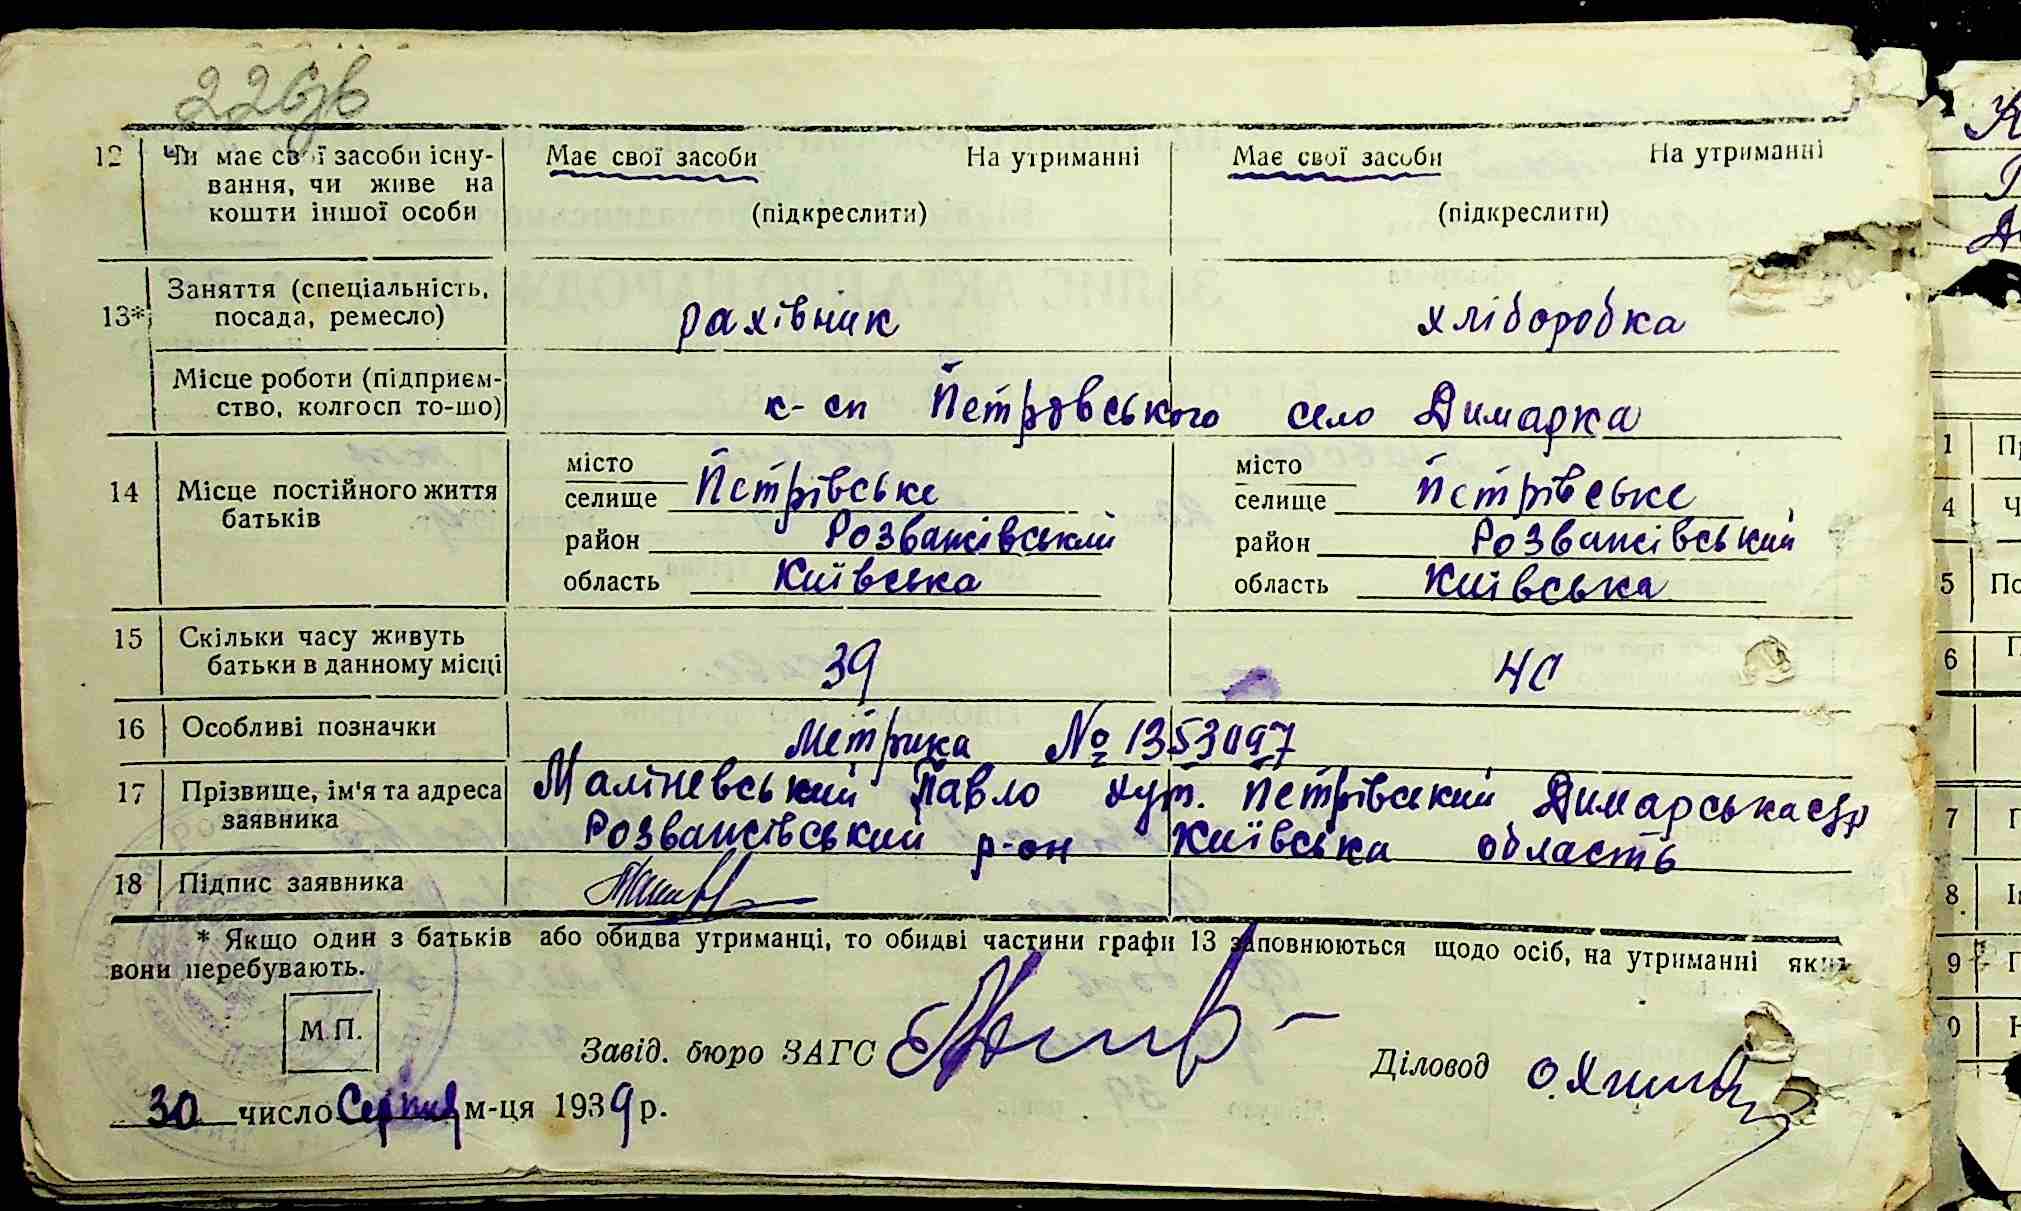 12 Чи має свої засоби існу- Має свої засоби На утриманні Має свої засоби На утриманні
вання, чи живе на
кошти іншої особи (підкреслити) (підкреслити)
13* Заняття (спеціальність,
посада, ремесло) рахівник хліборобка
Місце роботи (підприєм-
ство, колгосп то-що) к-сп Петровського село Димарка
місто місто
14 Місце постійного життя селище Петрівське селище Петрівське
батьків район Розважівський район Розважівський
область Київська область Київська
15 Скільки часу живуть
батьки в данному місці 39 40
16 Особливі позначки Метрика № 1353097
17 Прізвище, ім'я та адреса Маліневський Павло хут. Петрівський Димарська
заявника Розважівський р-он Київська область
18 Підпис заявника
* Якщо один з батьків або обидва утриманці, то обидві частини графи 13 заповнюються щодо осіб, на утриманні яких
вони перебувають.
М.П.
Завід. бюро ЗАГС Діловод
30 число Серпня м-ця 1939 р.
1
4
5
6
7
8
9